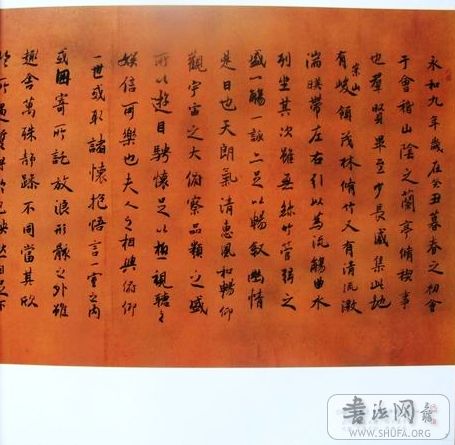 永和九年歲在癸丑暮春之初會
于會稽山陰之蘭亭脩稧事
也羣賢畢至少長咸集此地
有崇山峻領茂林脩竹又有清流激
湍暎帶左右引以為流觴曲水
列坐其次雖無絲竹管弦之
盛一觴一詠亦足以暢敘幽情
是日也天朗氣清惠風和暢仰
觀宇宙之大俯察品類之盛
所以遊目騁懷足以極視聽之
娛信可樂也夫人之相與俯仰
一世或取諸懷抱悟言一室之內
或因寄所託放浪形骸之外雖
趣舍萬殊靜躁不同當其欣
书法网
WWW.SHUFA.ORG